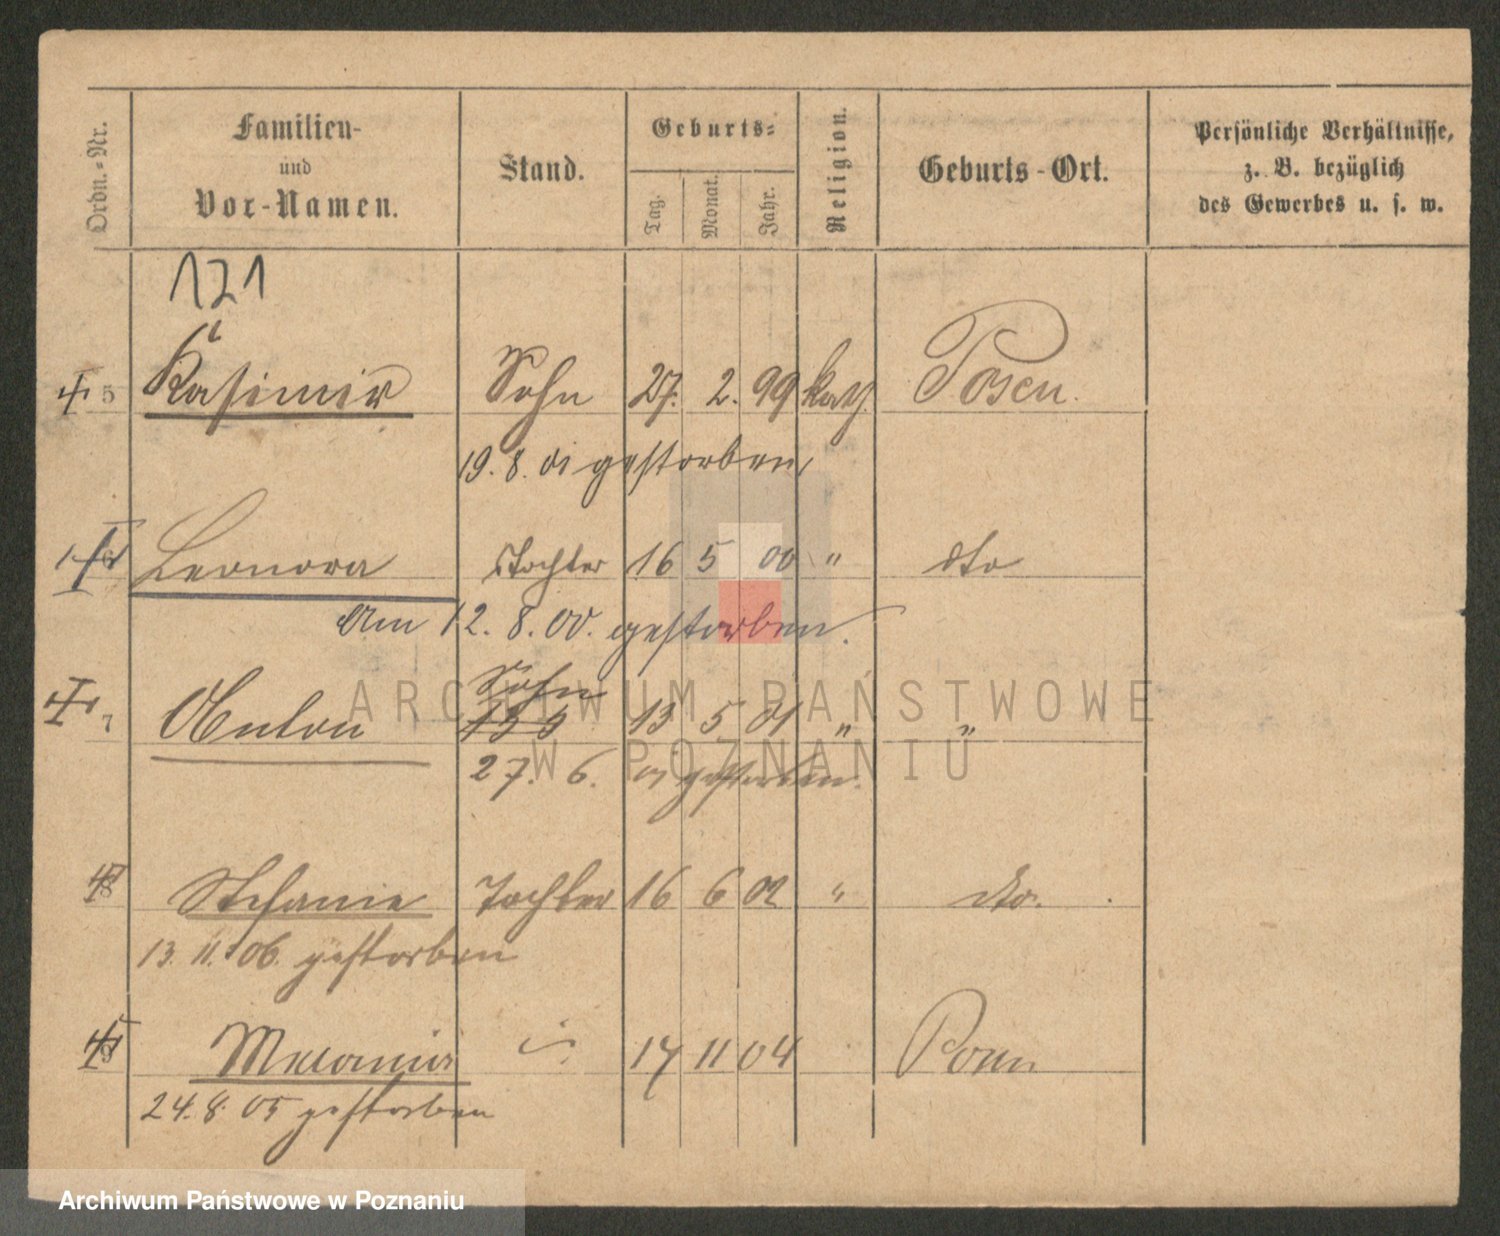 Ordn.-Nr.
Familien-
und
Vor-Namen.
Stand.
Geburts-
Tag. Monat. Jahr.
Religion.
Geburts-Ort.
Persönliche Verhältnisse,
z. B. bezüglich
des Gewerbes u. s. w.
121
5 Kasimir Sohn 27. 2. 99 kath. Posen.
19. 8. 01 gestorben,
6 Leonora Tochter 16 5 00 " dto
Am 12. 8. 00. gestorben.
Sohn
7 Anton 13 5 13 5 01 " "
27. 6. 01 gestorben.
8 Stefanie Tochter 16 6 02 " dto.
13. 11. 06. gestorben
9 Melania 17 11 04 Posen
24. 8. 05 gestorben
ARCHIWUM PAŃSTWOWE
W POZNANIU
Archiwum Państwowe w Poznaniu